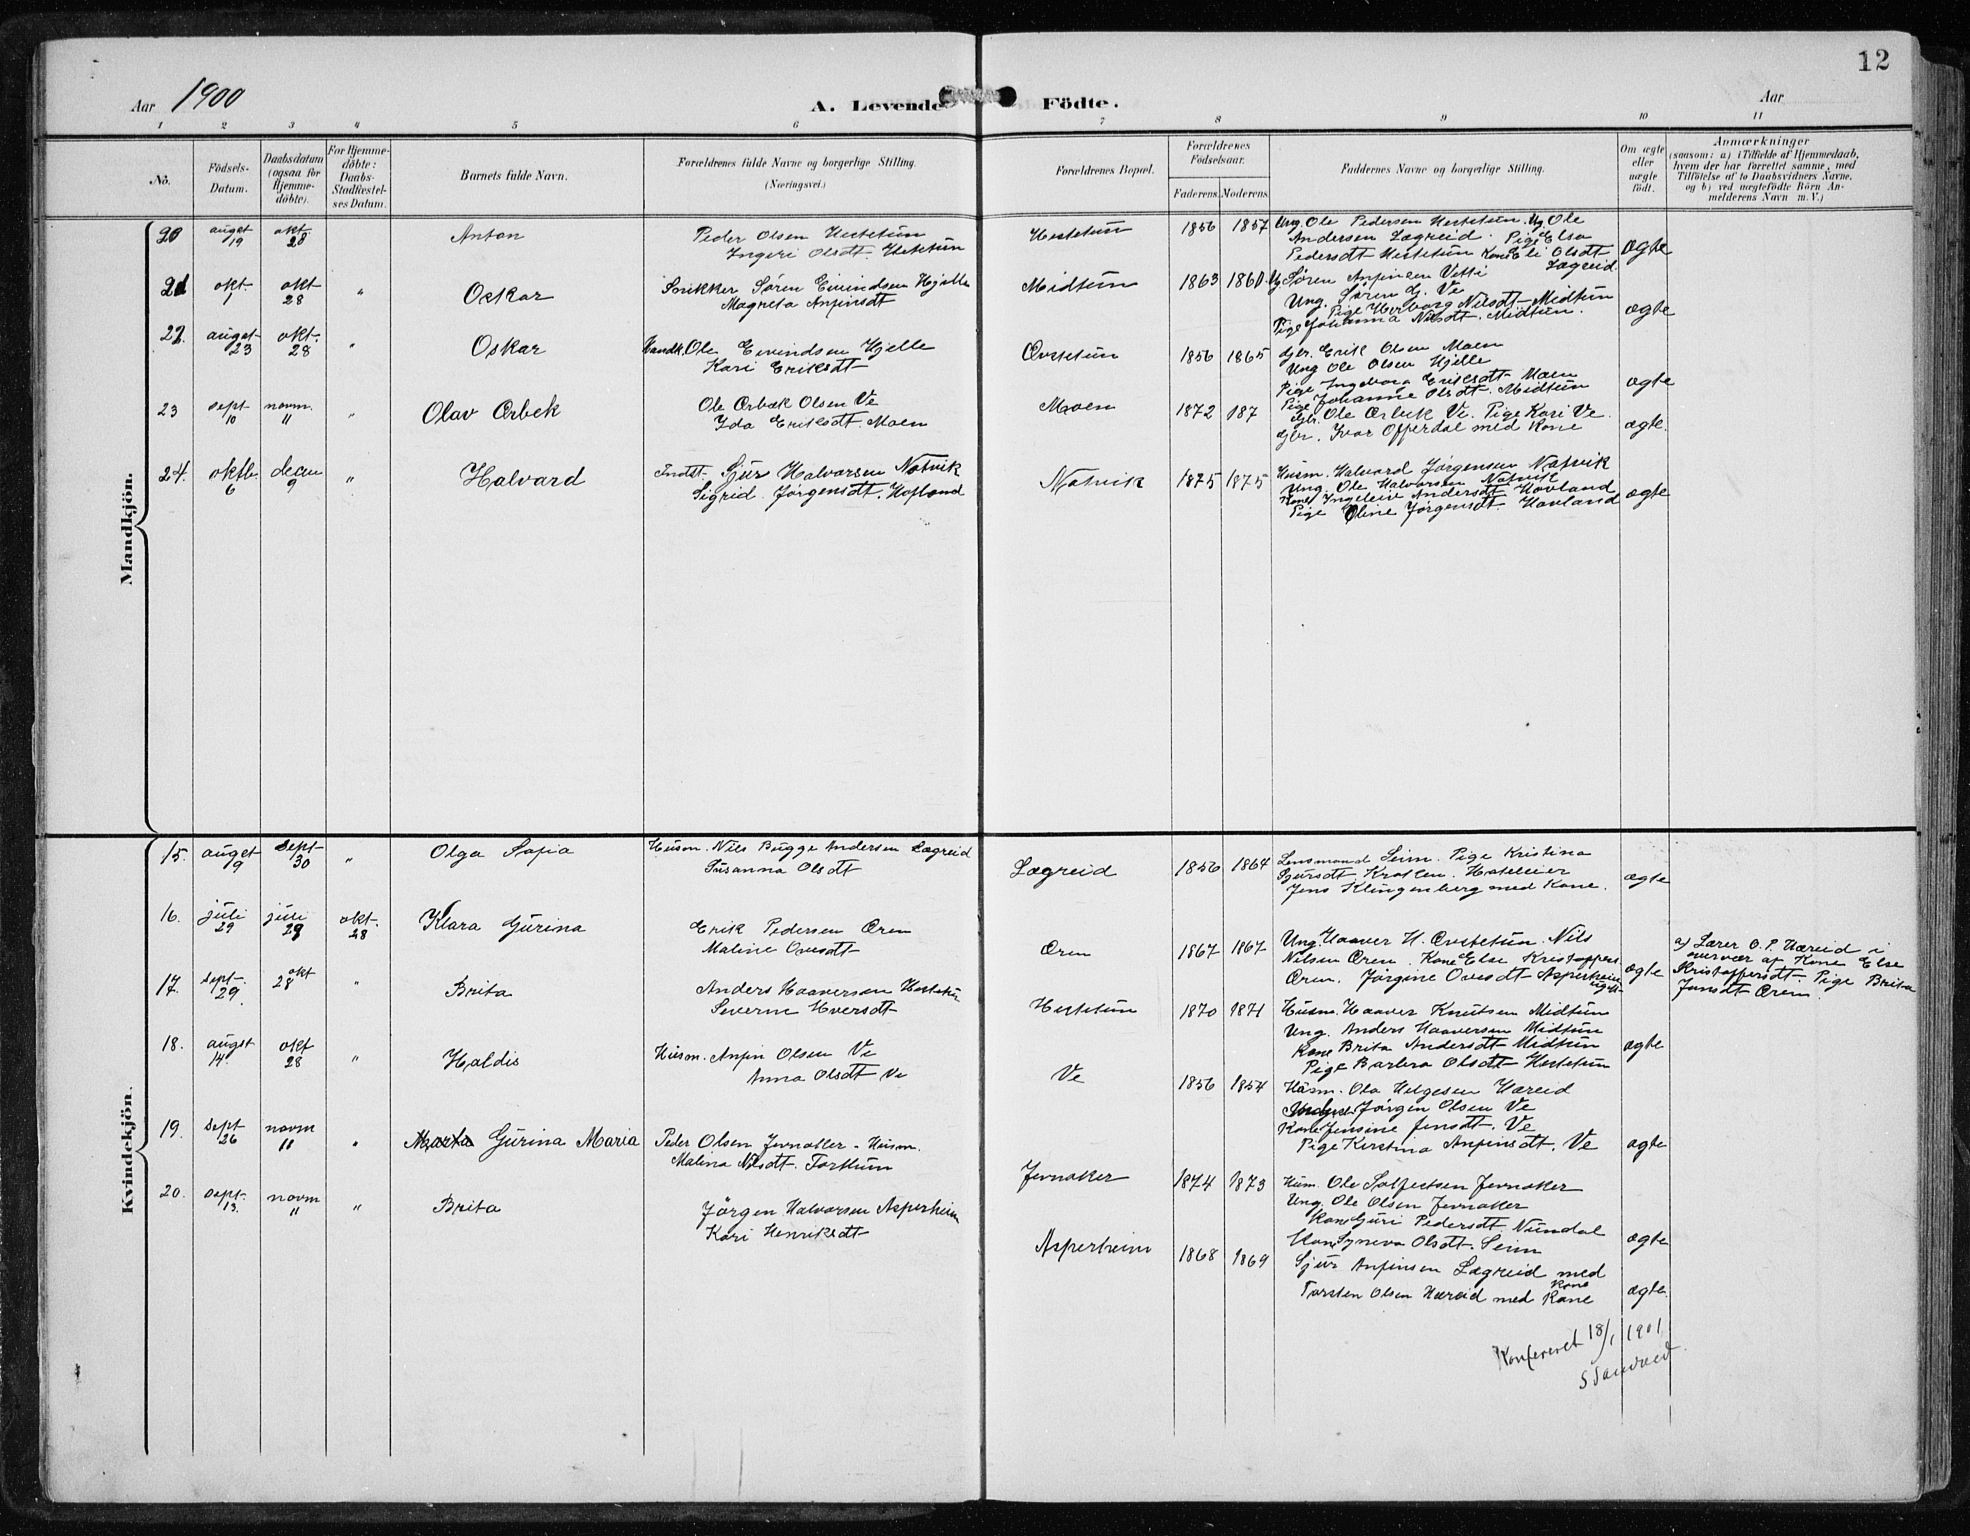 12
Aar 1900
A. Levende Födte.
Aar
1 2 3 4 5 6 7 8 9 10 11
No.
Födsels-Datum.
Daabsdatum (ogsaa for Hjemme-döbte).
For Hjemme-döbte: Daabs-Stadfæstel-ses Datum.
Barnets fulde Navn.
Forældrenes fulde Navne og borgerlige Stilling.
(Næringsvei.)
Forældrenes Bopæl.
Forældrenes Födselsaar.
Faderens. Moderens.
Faddernes Navne og borgerlige Stilling.
Om ægte eller uægte födt.
Anmærkninger
(saasom: a) i Tilfælde af Hjemmedaab,
hvem der har forrettet samme, med
Tilföielse af to Daabsvidners Navne,
og b) ved uægtefödte Börn An-
melderens Navn m. V.)
Mandkjön.
20 auget 19 okt 28 Anton
Peder Olsen Hestetun
Ingeri Olsdt. Hestetun
Hestetun 1856 1857
Ung. Ole Pedersen Hestetun. Ug Ole
Andersen Lægreid. Pige Elsa
Pedersdt Hestetun Kone Eli Olsdt
Lægreid
ægte
21 okt 1 okt 28 " Oskar
Søren Eivindsen Hjelle
Magreta Anfinsdt
Midtun 1863 1860
Ug Søren Anfinsen Vetti
Ung. Søren G. Ve
Pige Herborg Nilsdt Midtun
Pige Johanna Nilsdt. Midtun.
ægte
22. auget 23 okt. 28 " Oskar
Handk. Ole Eivindsen Hjelle
Kari Eriksdt
Øvstetun 1856 1865
Gbr. Erik Olsen Moen
Ung Ole Olsen Hjelle
Pige Ingeborg Eriksdt Moen
Pige Johanne Olsdt. Midtun
ægte
23 sept 10 novm. 11 " Olav Ørbek
Ole Ørbæk Olsen Ve
Ida Eriksdt. Moen
Moen 1872 187
Gbr. Ole Ørbek Ve. Pige Kari Ve.
Gbr. Ivar Offerdal med Kone
ægte.
24. oktb. 6 decm 9 " Halvard
Indst. Sjur Halvorsen Natvik
Sigreid Jørgensdt. Hofland
Natvik 1875 1875
Husm. Halvard Jørgensen Natvik
Ung. Ole Halvorsen Natvik
Kone Ingeleiv Andersdt Hovland
Pige Oline Jørgensdt. Hovland
ægte
Kvindekjön.
15. auget 9 sept 30 " Olga Sofia
Husm. Nils Bugge Andersen Lægreid
Susanna Olsdt
Lægreid 1856 1864
Lensmand Seim. Pige Kristina
Sjursdt. Kroken. Hoteleier
Jens Klingenberg med Kone.
ægte
16. juli 29 juli 29 okt. 28 Klara Gurina
Erik Pedersen Øren
Maline Ovesdt
Øren 1867 1867
Ung. Haaver H. Øvstetun. Nils
Nilsen Øren. Kone Else Kristoffers
Øren. Jørgine Ovesdt Asperheim
ugift
ægte
a) Lærer O. P. Hæreid i
overvær af Kone Else
Kristoffersdt Pige Brita
Jensdt Øren.
17. sept 29. okt 28 " Brita
Anders Haaversen Hestetun
Severine Iversdt
Hestetun 1870 1871
Husm. Haaver Knutsen Midtun
Ung. Anders Haaversen Midtun
Kone Brita Andersdt Midtun
Pige Barbra Olsdt Hestetun
ægte
18. auget 14. okt 28 " Haldis
Husm. Anfin Olsen Ve
Anna Olsdt Ve
Ve 1856 1854
Husm. Ola Helgesen Hæreid
Jørgen Olsen Ve
Kone Jensine Jensdt. Ve
Pige Kirstina Anfinsdt. Ve
ægte
19. sept 26 novm 11 " Marta Gurina Maria
Peder Olsen Jernaker. Husm.
Malina Nilsdt. Torhum
Jernaker 1874 1873
Hum. Ole Salfestsen Jernaker
Ung. Ole Olsen Jernaker
Kone Guri Pedersdt. Nundal
Kone Syneva Olsdt. Seim
ægte
20. sept 13. novm 11 " Brita
Jørgen Halvorsen Asperheim
Kari Henriksdt
Asperheim 1868 1869
Sjur Anfinsen Lægreid med
Kone
Torsten Olsen Hæreid med Kone
ægte.
Konfereret 18/1 1901